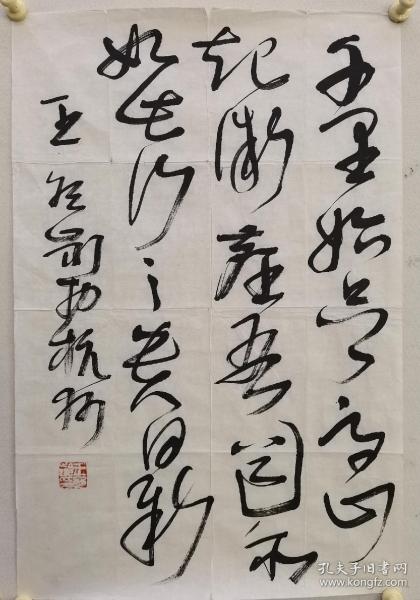 千里始足下高山
起微塵吾道亦
如此行之貴日新
王
杭州
孔夫子旧书网
www.kongfz.com